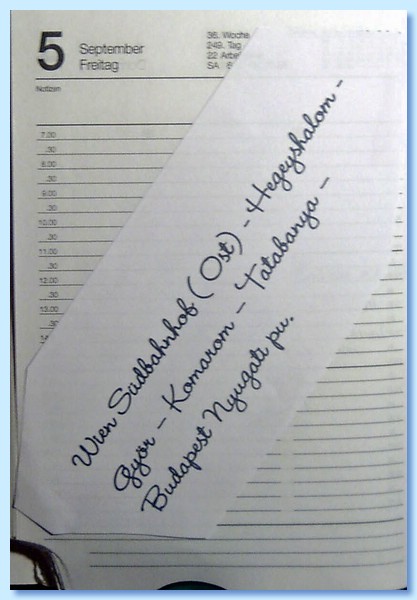 5
September
Freitag
36. Woche
249. Tag
22 Arbei
SA 6
Notizen
7.00
.30
8.00
.30
9.00
.30
10.00
.30
11.00
.30
12.00
.30
13.00
.30
14
Wien Südbahnhof (Ost) - Hegeyshalom -
Györ - Komarom - Tatabanya -
Budapest Nyugati pu.